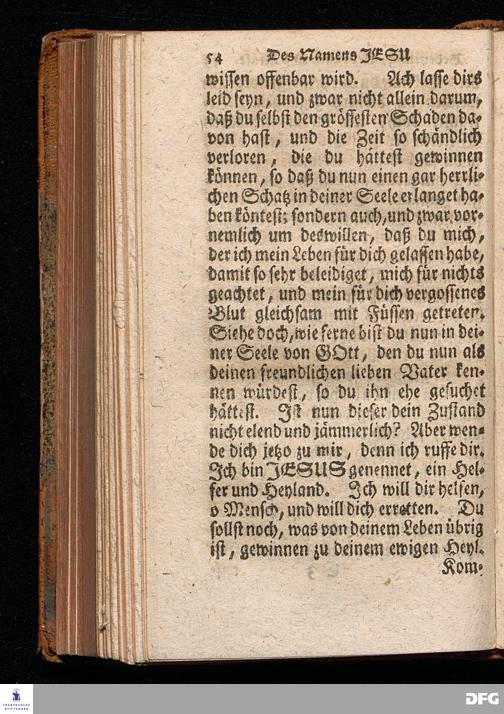 54 Des Namens JESU
wissen offenbar wird. Ach lasse dirs
leid seyn, und zwar nicht allein darum,
daß du selbst den grössesten Schaden da-
von hast, und die Zeit so schändlich
verloren, die du hättest gewinnen
können, so daß du nun einen gar herrli-
chen Schatz in deiner Seele erlanget ha-
ben köntest; sondern auch, und zwar vor-
nemlich um deswillen, daß du mich,
der ich mein Leben für dich gelassen habe,
damit so sehr beleidiget, mich für nichts
geachtet, und mein für dich vergossenes
Blut gleichsam mit Füssen getreten.
Siehe doch, wie ferne bist du nun in dei-
ner Seele von GOtt, den du nun als
deinen freundlichen lieben Vater ken-
nen würdest, so du ihn ehe gesuchet
hättest. Ist nun dieser dein Zustand
nicht elend und jämmerlich? Aber wen-
de dich jetzo zu mir, denn ich ruffe dir.
Ich bin JESUS genennet, ein Hel-
fer und Heyland. Ich will dir helfen,
o Mensch, und will dich erretten. Du
sollst noch, was von deinem Leben übrig
ist, gewinnen zu deinem ewigen Heyl.
Kom-
FRANCKESCHE
STIFTUNGEN
DFG